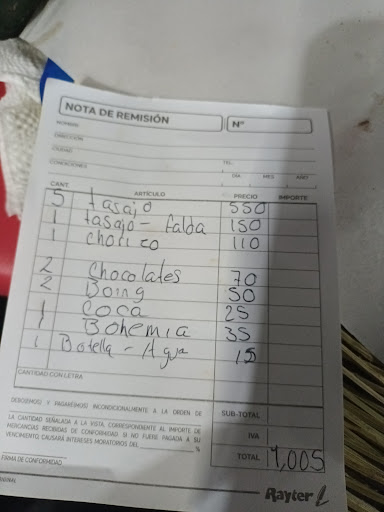 NOTA DE REMISIÓN
Nº
NOMBRE
DIRECCIÓN
CIUDAD
CONDICIONES
TEL.
DÍA MES AÑO
CANT. ARTÍCULO PRECIO IMPORTE
5 tasajo 550
1 tasajo - falda 150
1 chorizo 110
2 Chocolates 70
2 Boing 50
1 Coca 25
1 Bohemia 35
1 Botella - Agua 15
CANTIDAD CON LETRA
DEBO(EMOS) Y PAGARÉ(MOS) INCONDICIONALMENTE A LA ORDEN DE
SUB-TOTAL
LA CANTIDAD SEÑALADA A LA VISTA, CORRESPONDIENTE AL IMPORTE DE
MERCANCÍAS RECIBIDAS DE CONFORMIDAD. SI NO FUERE PAGADA A SU
VENCIMIENTO, CAUSARÁ INTERESES MORATORIOS DEL %
IVA
TOTAL 1,005
FIRMA DE CONFORMIDAD
Rayter